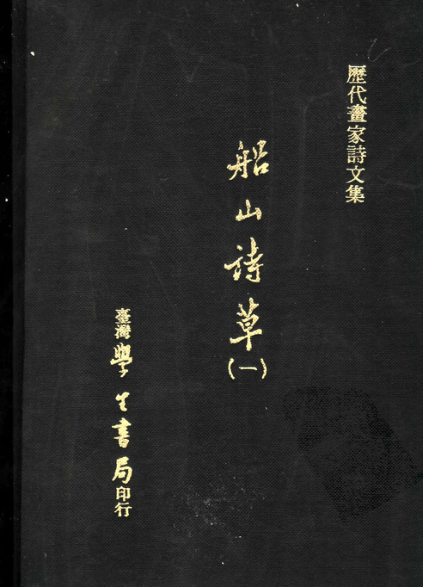 歷代畫家詩文集
船山詩草
(一)
臺灣學生書局印行